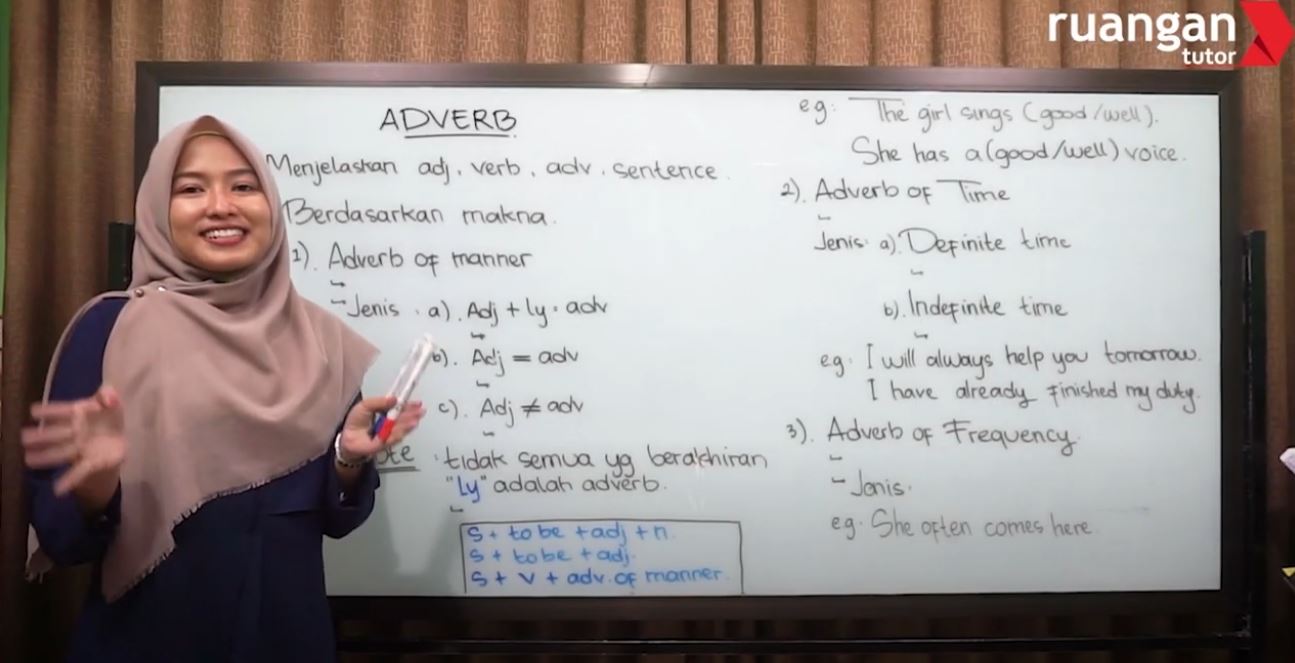 ruangan
tutor
ADVERB
Menjelaskan adj, verb, adv, sentence.
Berdasarkan makna.
1). Adverb of manner
- Jenis : a). Adj + ly = adv
b). Adj = adv
c). Adj ≠ adv
: tidak semua yg berakhiran
"Ly" adalah adverb.
S + to be + adj + n.
S + to be + adj.
S + V + adv. of manner.
eg: The girl sings (good/well).
She has a (good/well) voice.
2). Adverb of Time
Jenis: a). Definite time
b). Indefinite time
eg: I will always help you tomorrow.
I have already finished my duty.
3). Adverb of Frequency.
- Jenis.
eg. She often comes here.